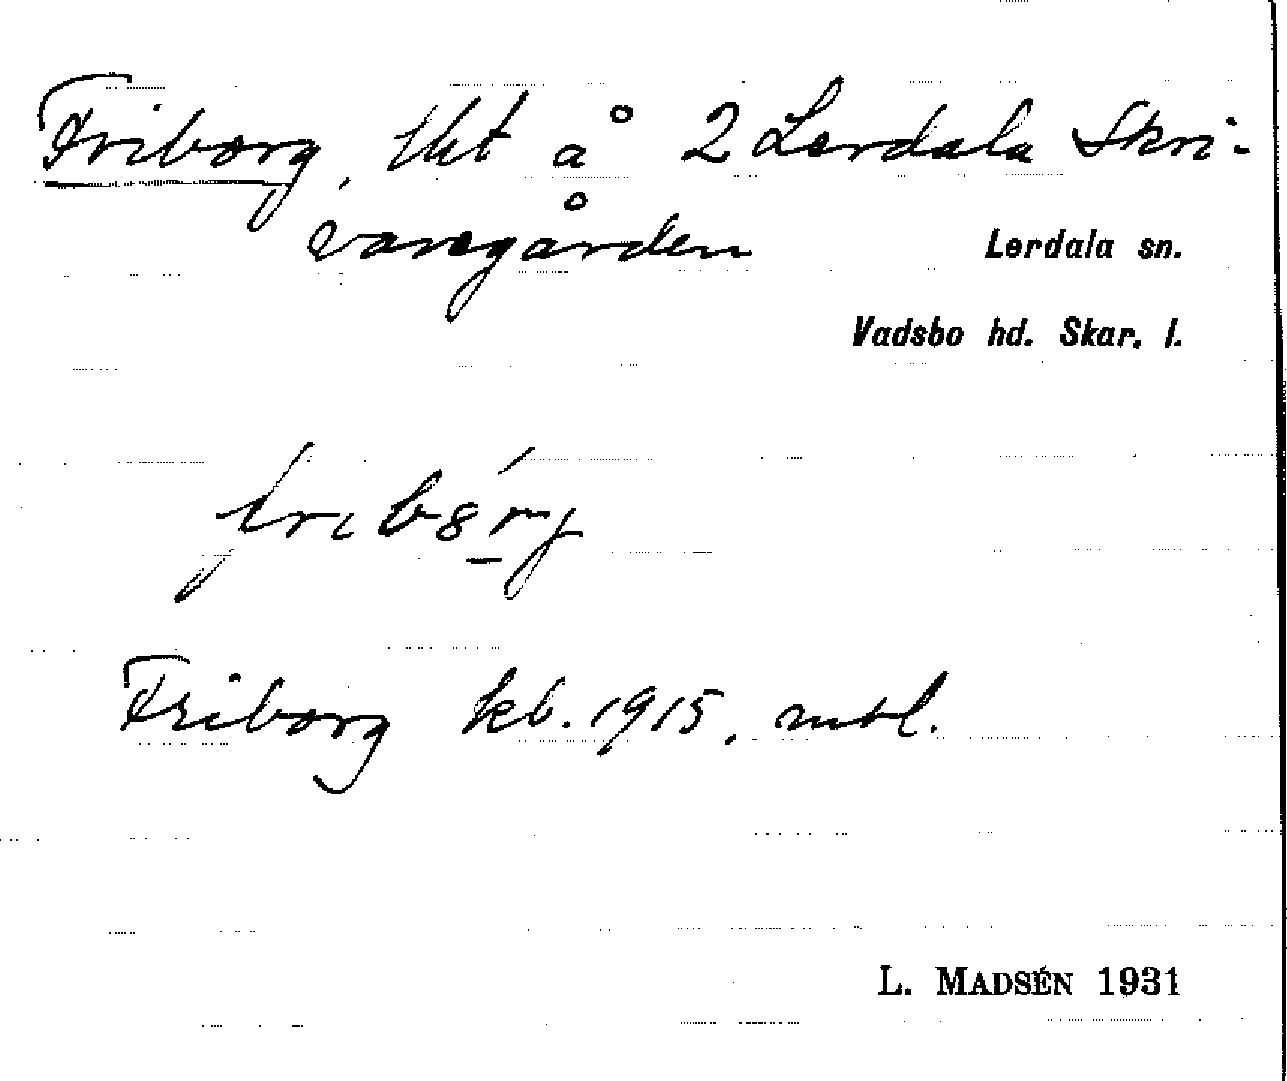 Friborg, tht å 2 Lerdala Skri-
varegården
Lerdala sn.
Vadsbo hd. Skar. l.
Friborg kb. 1915, mtl.
L. MADSÉN 1931